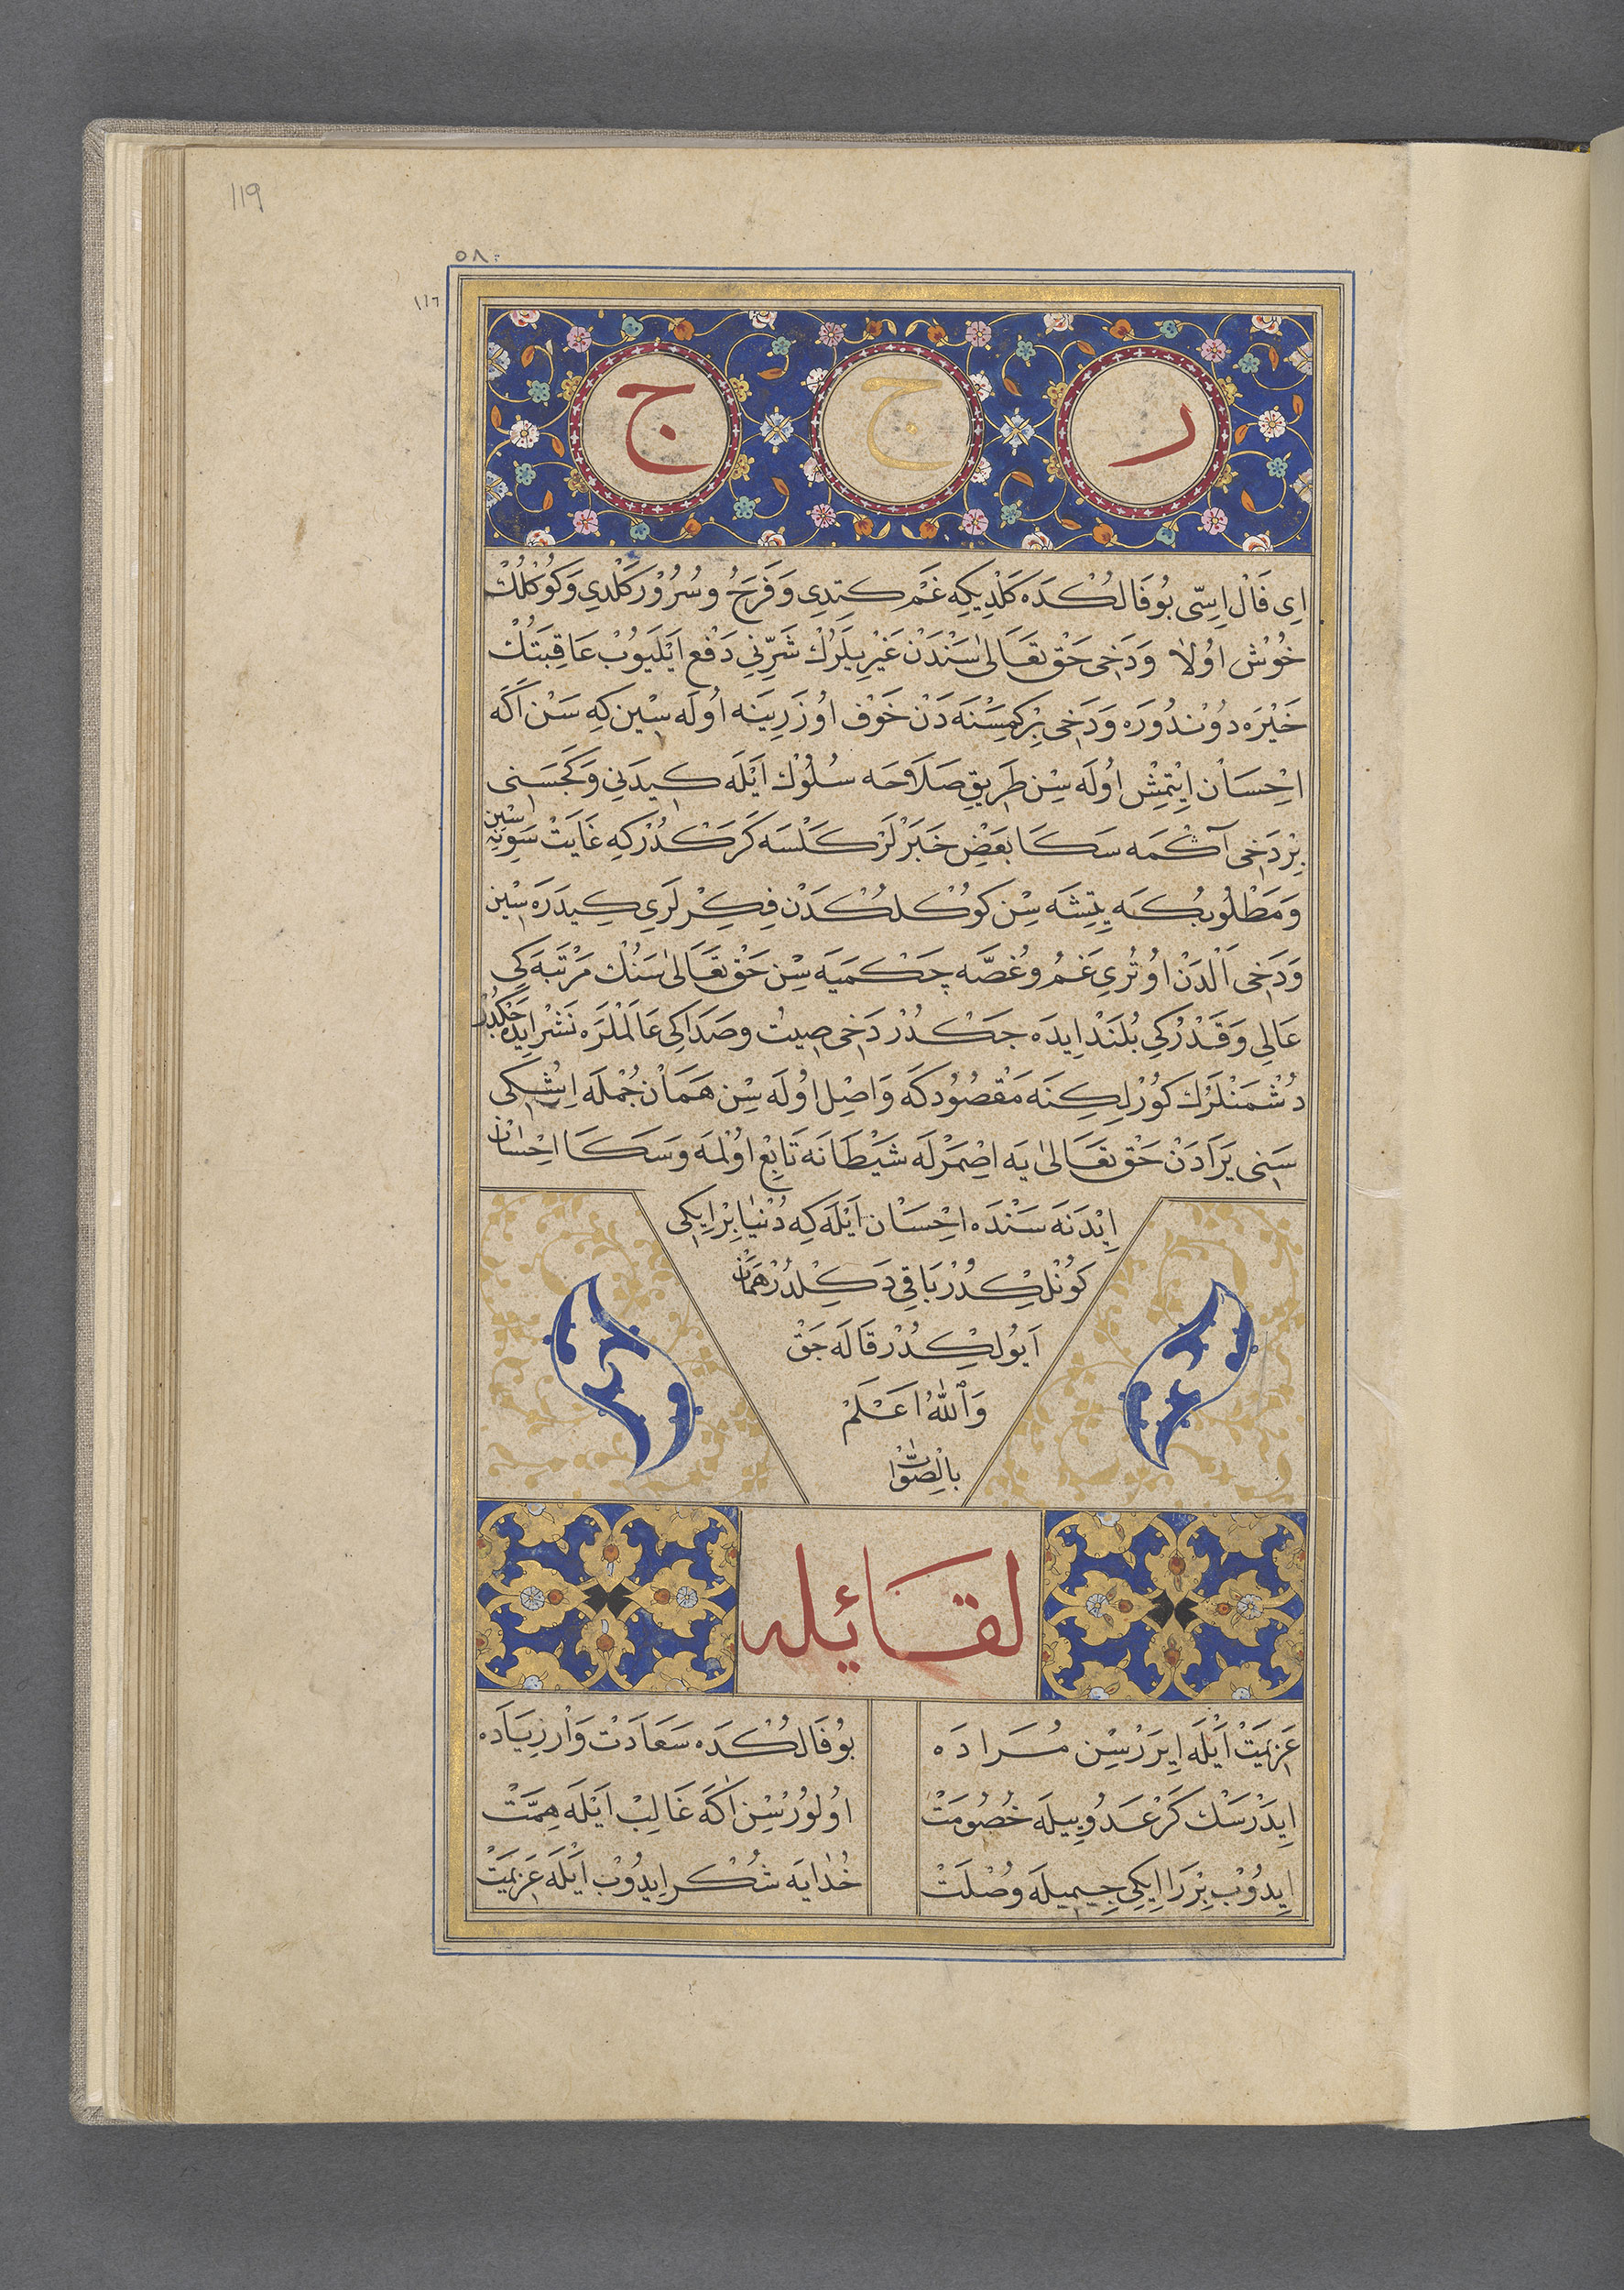 119
٥٨٠
١١٦
ر ج ج
اِی فَالْ اِسّی بُو فَالُكْدَه كَلْدِیكِه غَمْ كِتدِی وَفَرَحُ و سُرُوْر كَلْدِي وَكُوكْلُكْ
خُوْش اوُلاٰ وَدَخِی حَقْ تَعَالیٰ سَنْدَنْ غَیْرِیلَرُكْ شَرِّنِي دَفْع اَیْلَیُوبْ عَاقِبَتُكْ
خَیْرَه دوُنْدُورَه وَدَخِی بِرْكِمسْنَه دَنْ خَوْف اوُزَرِینَه اوُلَه سِیْن كِه سَنْ اَكَه
اِحْسَانْ اِیْتمِشْ اوُلَه سِنْ طَرِیقِ صَلَاحَه سُلُوْك اَیْلَه كِیدَنِی وَكَجَسَنِی
بِرْدَخِی آكْمَه سَكَا بَعَضِ خَبَرْلَرْ كَلْسَه كَرَكْدُرْكِه غَایَتْ سَوِنَه سِیْن
وَمَطْلُوبُكَه یِتِشَه سِنْ كُوكْلُكْدَنْ فِكِرْلَرِی كِیدَرَه سِیْن
وَدَخِی اَلْدَنْ اوُتُرِي غَمُ و غُصَّه چَكْمَیَه سِنْ حَقْ تَعَالیٰ سَنُكْ مَرْتَبَه كِی
عَالِی وَقَدْرُكِی بُلَنْد اِیدَه جَكْدُرْ دَخِی صِیتُ و صَدَاكِی عَالَمْلَرَه نَشْر اِیدَه جَكْدُرْ
دُشْمَنْلَرُكْ كُورْلِكِنَه مَقْصُودُكَه وَاصِل اوُلَه سِنْ هَمَانْ جُمْلَه اِیشُكِی
سَنِی یَرَادَنْ حَقْ تَعَالیٰ یَه اِصْمَرْلَه شَیْطَانَه تَابِعْ اوُلْمَه وَسَكَا اِحْسَان
اِیْدَنَه سَنْدَه اِحْسَان اَیْلَه كِه دُنْیَا بِرْ اِیكِی
كُونْلِكْدُرْ بَاقِی دَكِلْدُرْ هَمَانْ
اَیُولِكْدُرْ قَالَه جَقْ
وَاللّٰهُ اَعْلَمْ
بِالصَّوَابْ
لقَائِله
عَزِیمَتْ اَیْلَه اِیرَرْسِنْ مُرَادَه
بُو فَالُكْدَه سَعَادَتْ وَارْ زِیَادَه
اِیدَرْسَكْ كَرْ عَدُو بِیلَه خُصُومَتْ
اوُلُورْسِنْ اَكَه غَالِبْ اَیْلَه هِمَّتْ
اِیدُوْبْ بِرْ رَا اِیكِی جِیمِیلَه وُصْلَتْ
خُدَایَه شُكْر اِیدُوْبْ اَیْلَه عَزِیمَتْ